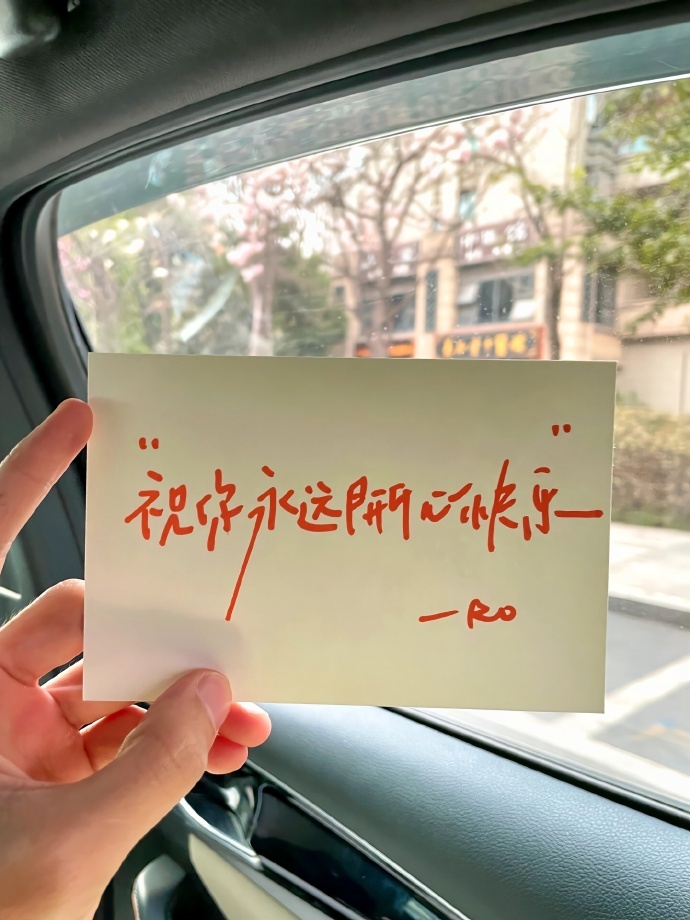 "祝你永远开心快乐"
—Ro